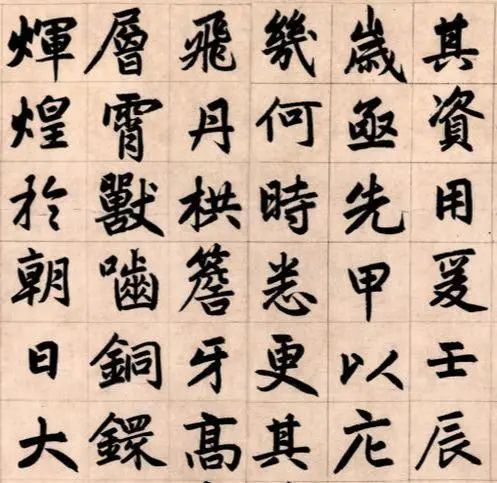 其資用爰壬辰
歲亟先甲以庀
幾何時悉更其
飛丹栱簷牙高
層霄獸噛銅鐶
煇煌於朝日大